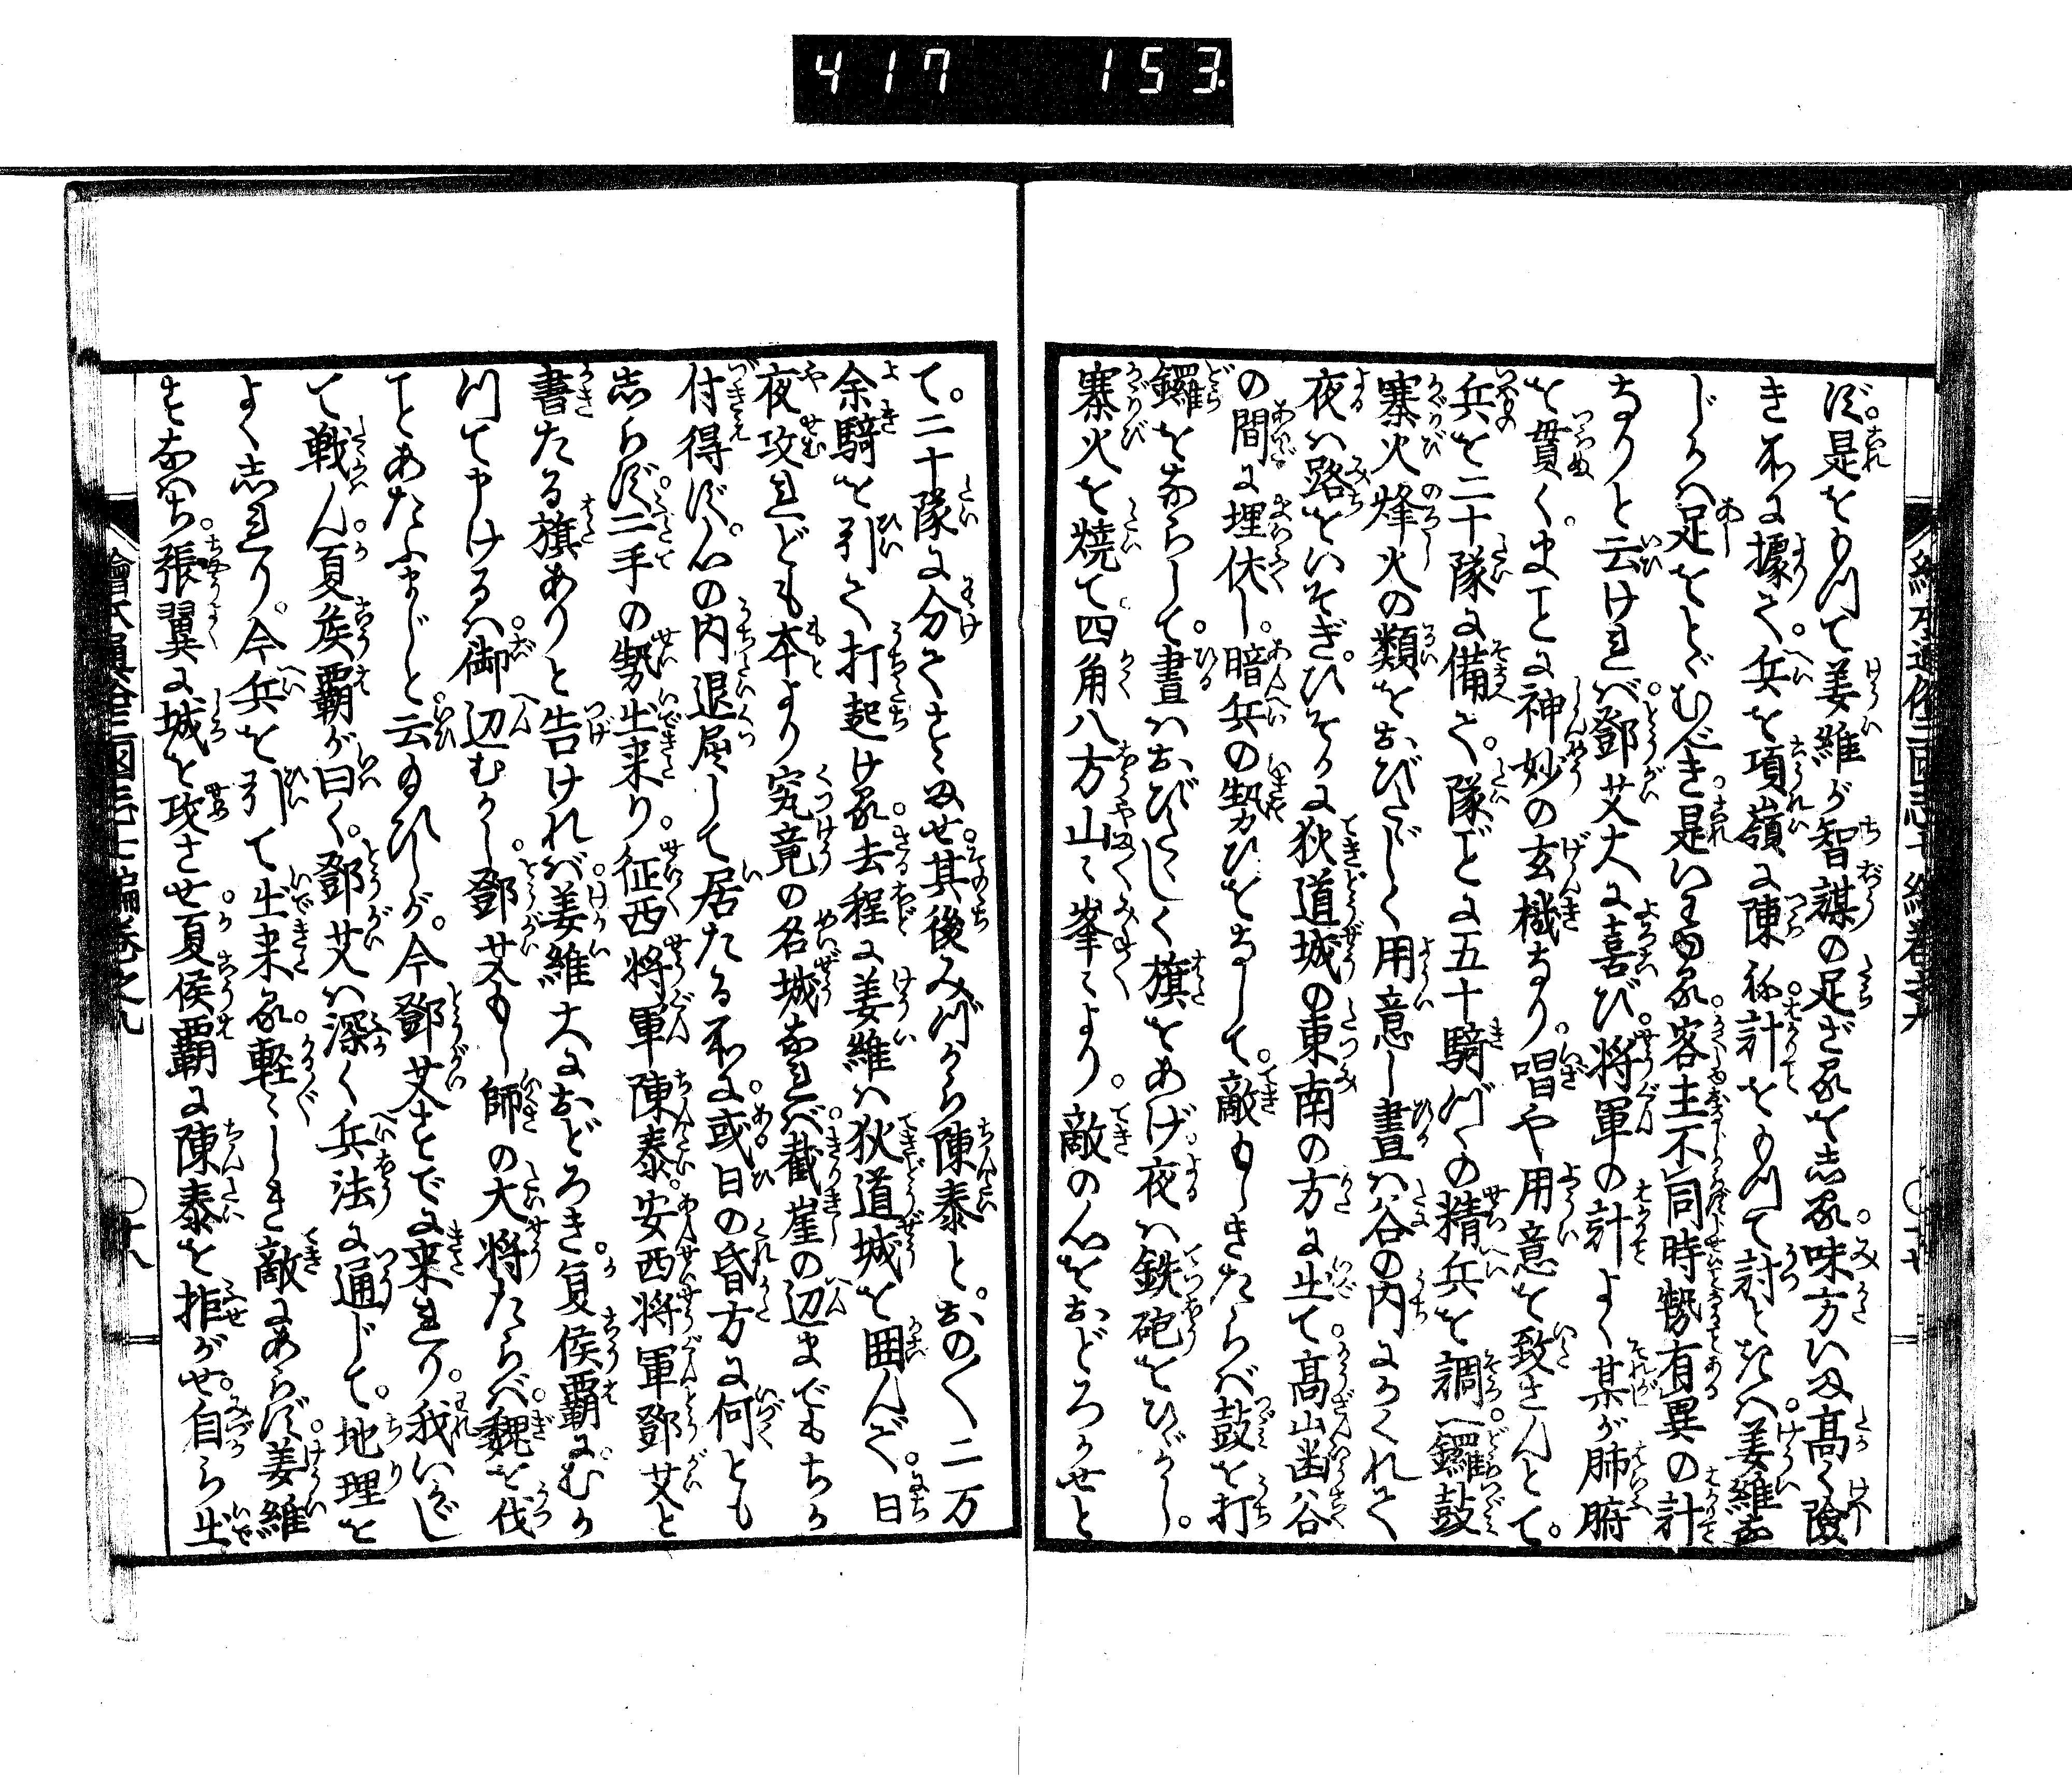 417 153
ず。是をもつて姜維が智謀の足ざるを志る。味方ハ又高く險
き所に據て。兵を項嶺に陳祢計をもつて討とたハ。姜維
じくハ足をとゞむべき。是いはゆる客主不同時勢有異の計
なりと云けれバ鄧艾大に喜び。将軍の計よく某が肺腑
を貫く。まことに神妙の玄機なり。唱や用意を致さんとて。
兵を二十隊に備て。隊ごとに五十騎づゝの精兵を調へ鑼鼓
寨火烽火の類をおびたゞしく用意し晝ハ谷の内にかくれて
夜ハ路をいそぎ。ひそかに狄道城の東南の方に出て。高山幽谷
の間に埋伏し。暗兵の勢ひをなして。敵もしきたらバ鼓を打
鑼をならして。晝ハおびたゝしく旗をあげ。夜ハ鉄砲をひゞかし。
寨火を焼て四角八方山〻峯〻より。敵の心をおどろかせと
て。二十隊に分てさきぬせ。其後みづから陳泰と。おの〱二万
余騎を引て打起ける。去程に姜維ハ狄道城を囲んで。日
夜攻れども本より究竟の名城なれバ截崖の辺までもちか
付得ず。心の内退屈して居たる所に。或日の昏方に何とも
志らず。二手の勢出来り。征西将軍陳泰。安西将軍鄧艾と
書たる旗ありと告けれバ。姜維大におどろき。夏侯覇にむか
つて申けるハ。御辺むかし。鄧艾もし師の大将たらバ。魏を伐
ことあたふまじと云ゐひしが。今鄧艾すでに来れり。我いかゞし
て戦ん。夏矦覇が曰く。鄧艾ハ深く兵法に通じて。地理を
よく志れり。今兵を引て出来る。軽〻しき敵にあらず。姜維
すなハち。張翼に城を攻させ。夏侯覇に陳泰を拒がせ。自ら出